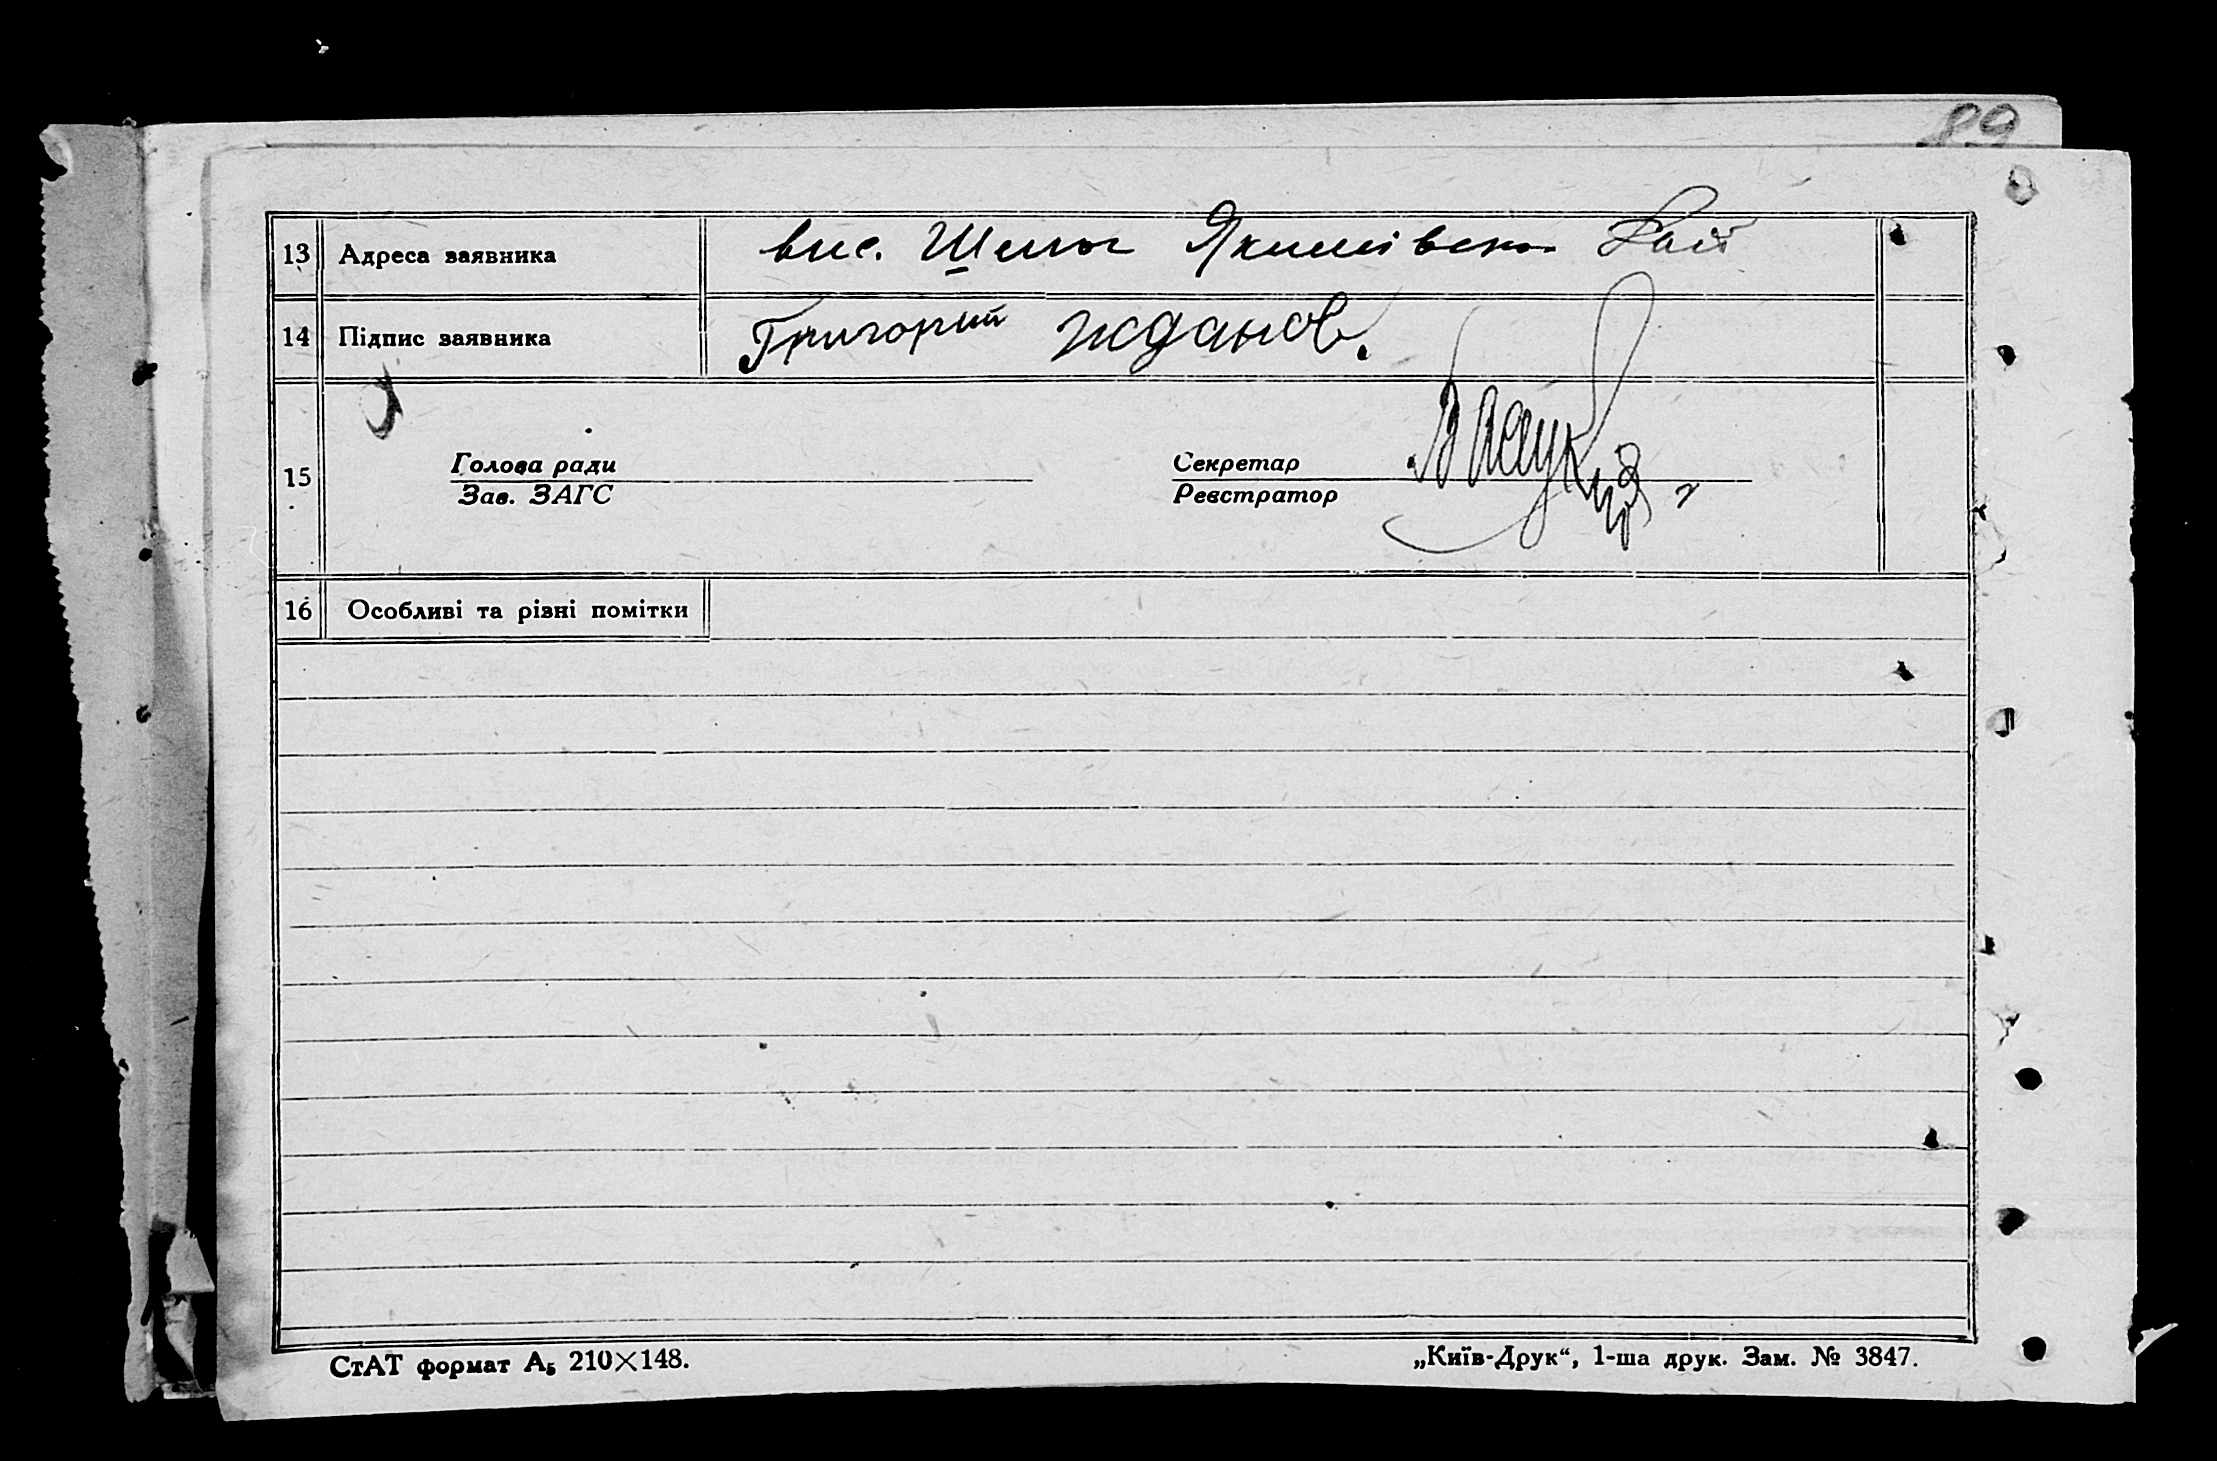 89
13 Адреса заявника вис. Якимівськ
14 Підпис заявника Григорий Жданов.
15 Голова ради Секретар
Зав. ЗАГС Реєстратор
16 Особливі та різні помітки
СтАТ формат А₅ 210×148. „Київ-Друк“, 1-ша друк. Зам. № 3847.